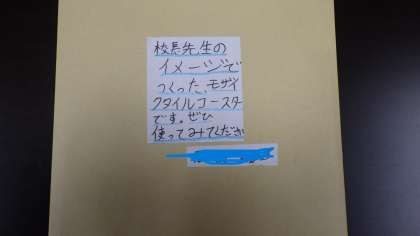 校長先生の
イメージで
つくった、モザイ
クタイルコースター
です。ぜひ
使ってみてください